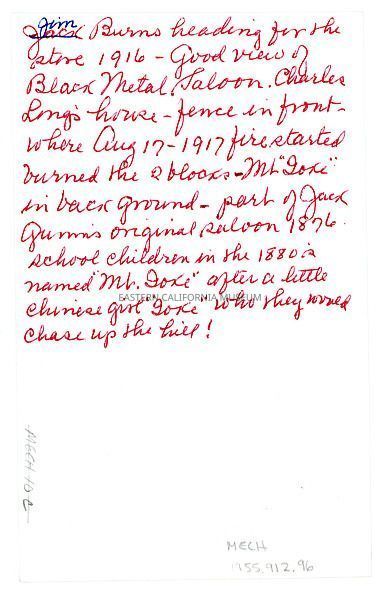 Jim
Jack Burns heading for the
store 1916 - Good view of
Black Metal Saloon. Charles
Long's house - fence in front -
where Aug 17 - 1917 fire started
burned the 2 blocks - Mt "Toxi"
in back ground - part of Jack
Gunn's original saloon 1876.
school children in the 1880's
named "Mt. Toxi" after a little
EASTERN CALIFORNIA MUSEUM
Chinese girl "Toxi" who they would
chase up the hill!
MECH
MECH
1955.912.96